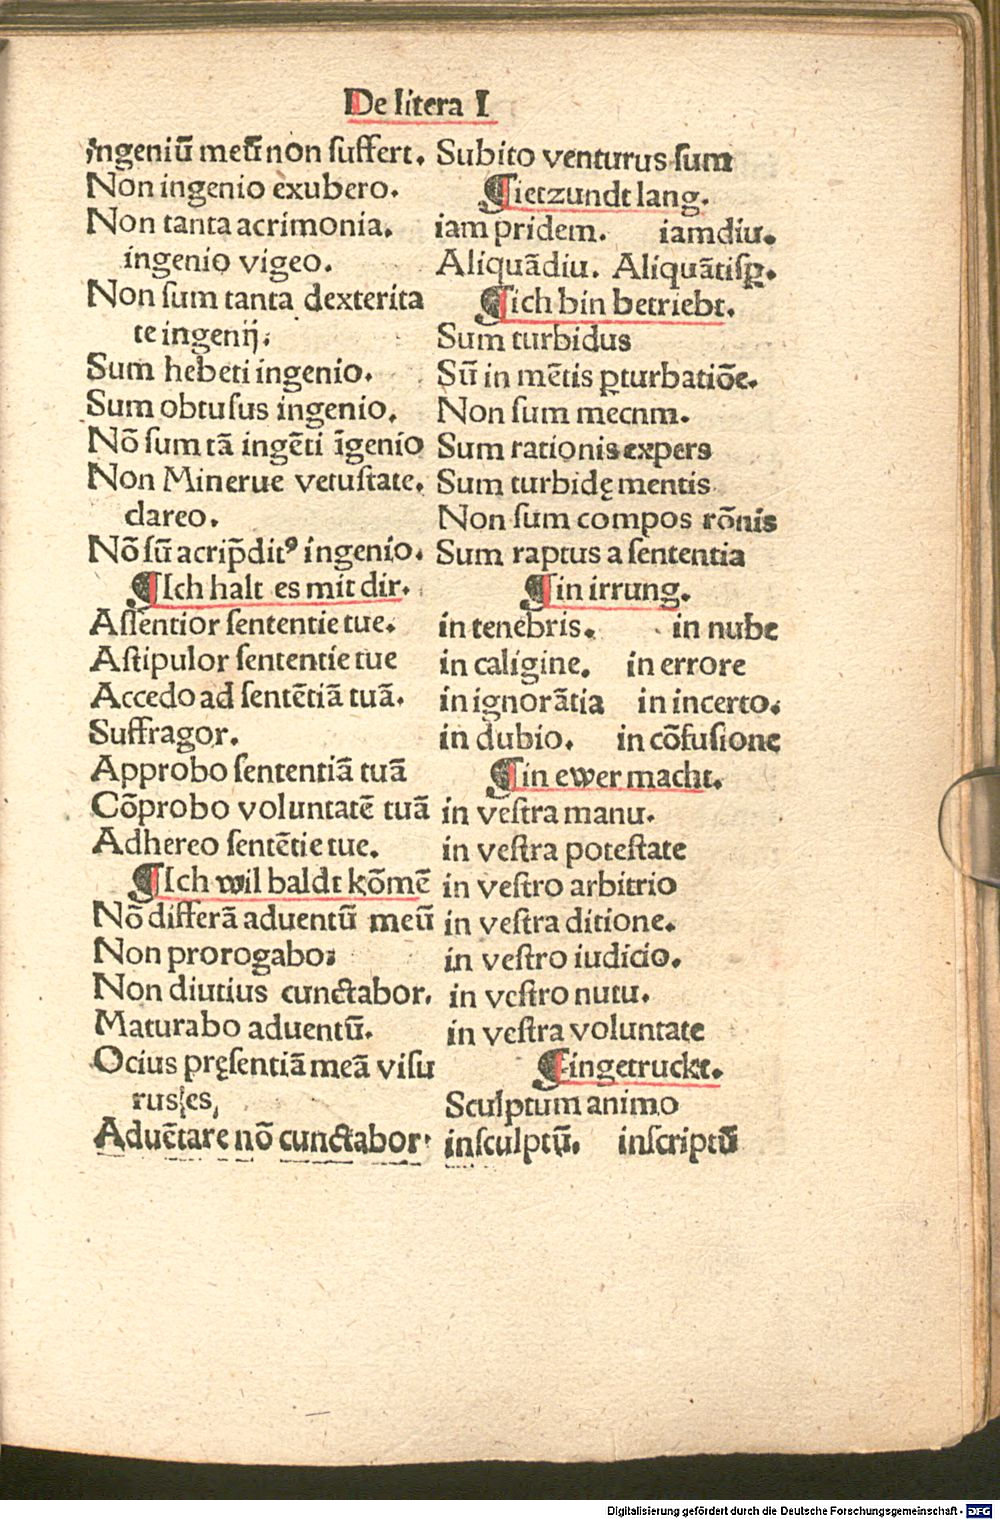 De litera I
ingeniū meū non suffert.
Non ingenio exubero.
Non tanta acrimonia.
ingenio vigeo.
Non sum tanta dexterita
te ingenij.
Sum hebeti ingenio.
Sum obtusus ingenio.
Nō sum tā ingēti īgenio
Non Minerue vetustate.
clareo.
Nō sū acrip̄ditꝰ ingenio.
¶Ich halt es mit dir.
Assentior sententie tue.
Astipulor sententie tue
Accedo ad sentētiā tuā.
Suffragor.
Approbo sententiā tuā
Cōprobo voluntatē tuā
Adhereo sentētie tue.
¶Ich wil baldt kōmē
Nō differā aduentū meū
Non prorogabo:
Non diutius cunctabor.
Maturabo aduentū.
Ocius pręsentiā meā visu
rus es,
Aduētare nō cunctabor.
Subito venturus sum
¶ietzundt lang.
iam pridem. iamdiu.
Aliquādiu. Aliquātisꝑ.
¶ich bin betriebt.
Sum turbidus
Sū in mētis ꝑturbatiōe.
Non sum mecnm.
Sum rationis expers
Sum turbidę mentis
Non sum compos rōnis
Sum raptus a sententia
¶in irrung.
in tenebris. in nube
in caligine. in errore
in ignorātia in incerto.
in dubio. in cōfusione
¶in ewer macht.
in vestra manu.
in vestra potestate
in vestro arbitrio
in vestra ditione.
in vestro iudicio.
in vestro nutu.
in vestra voluntate
¶ingetruckt.
Sculptum animo
insculptū. inscriptū
Digitalisierung gefördert durch die Deutsche Forschungsgemeinschaft - DFG